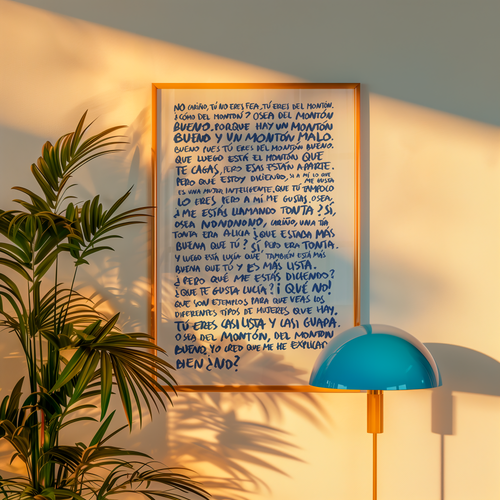 NO CARIÑO, TÚ NO ERES FEA, TÚ ERES DEL MONTÓN.
¿CÓMO DEL MONTÓN? OSEA DEL MONTÓN
BUENO. PORQUE HAY UN MONTÓN
BUENO Y UN MONTÓN MALO.
BUENO PUES TÚ ERES DEL MONTÓN BUENO.
QUE LUEGO ESTÁ EL MONTÓN QUE
TE CAGAS, PERO ESAS ESTÁN APARTE.
PERO QUE ESTOY DICIENDO, SI A MÍ LO QUE
ME GUSTA
ES UNA MUJER INTELIGENTE. QUE TÚ TAMPOCO
LO ERES, PERO A MÍ ME GUSTAS, OSEA,
¿ME ESTÁS LLAMANDO TONTA? SÍ,
OSEA NONONONO, CARIÑO, UNA TÍA
TONTA ERA ALICIA ¿QUE ESTABA MÁS
BUENA QUE TÚ? SÍ, PERO ERA TONTA.
Y LUEGO ESTÁ LUCÍA QUE TAMBIÉN ESTÁ MÁS
BUENA QUE TÚ Y ES MÁS LISTA.
¿PERO QUÉ ME ESTÁS DICIENDO?
¿QUE TE GUSTA LUCÍA? ¡QUÉ NO!
QUE SON EJEMPLOS PARA QUE VEAS LOS
DIFERENTES TIPOS DE MUJERES QUE HAY,
TÚ ERES CASI LISTA Y CASI GUAPA.
OSEA DEL MONTÓN, DEL MONTÓN
BUENO, YO CREO QUE ME HE EXPLICADO
BIEN ¿NO?